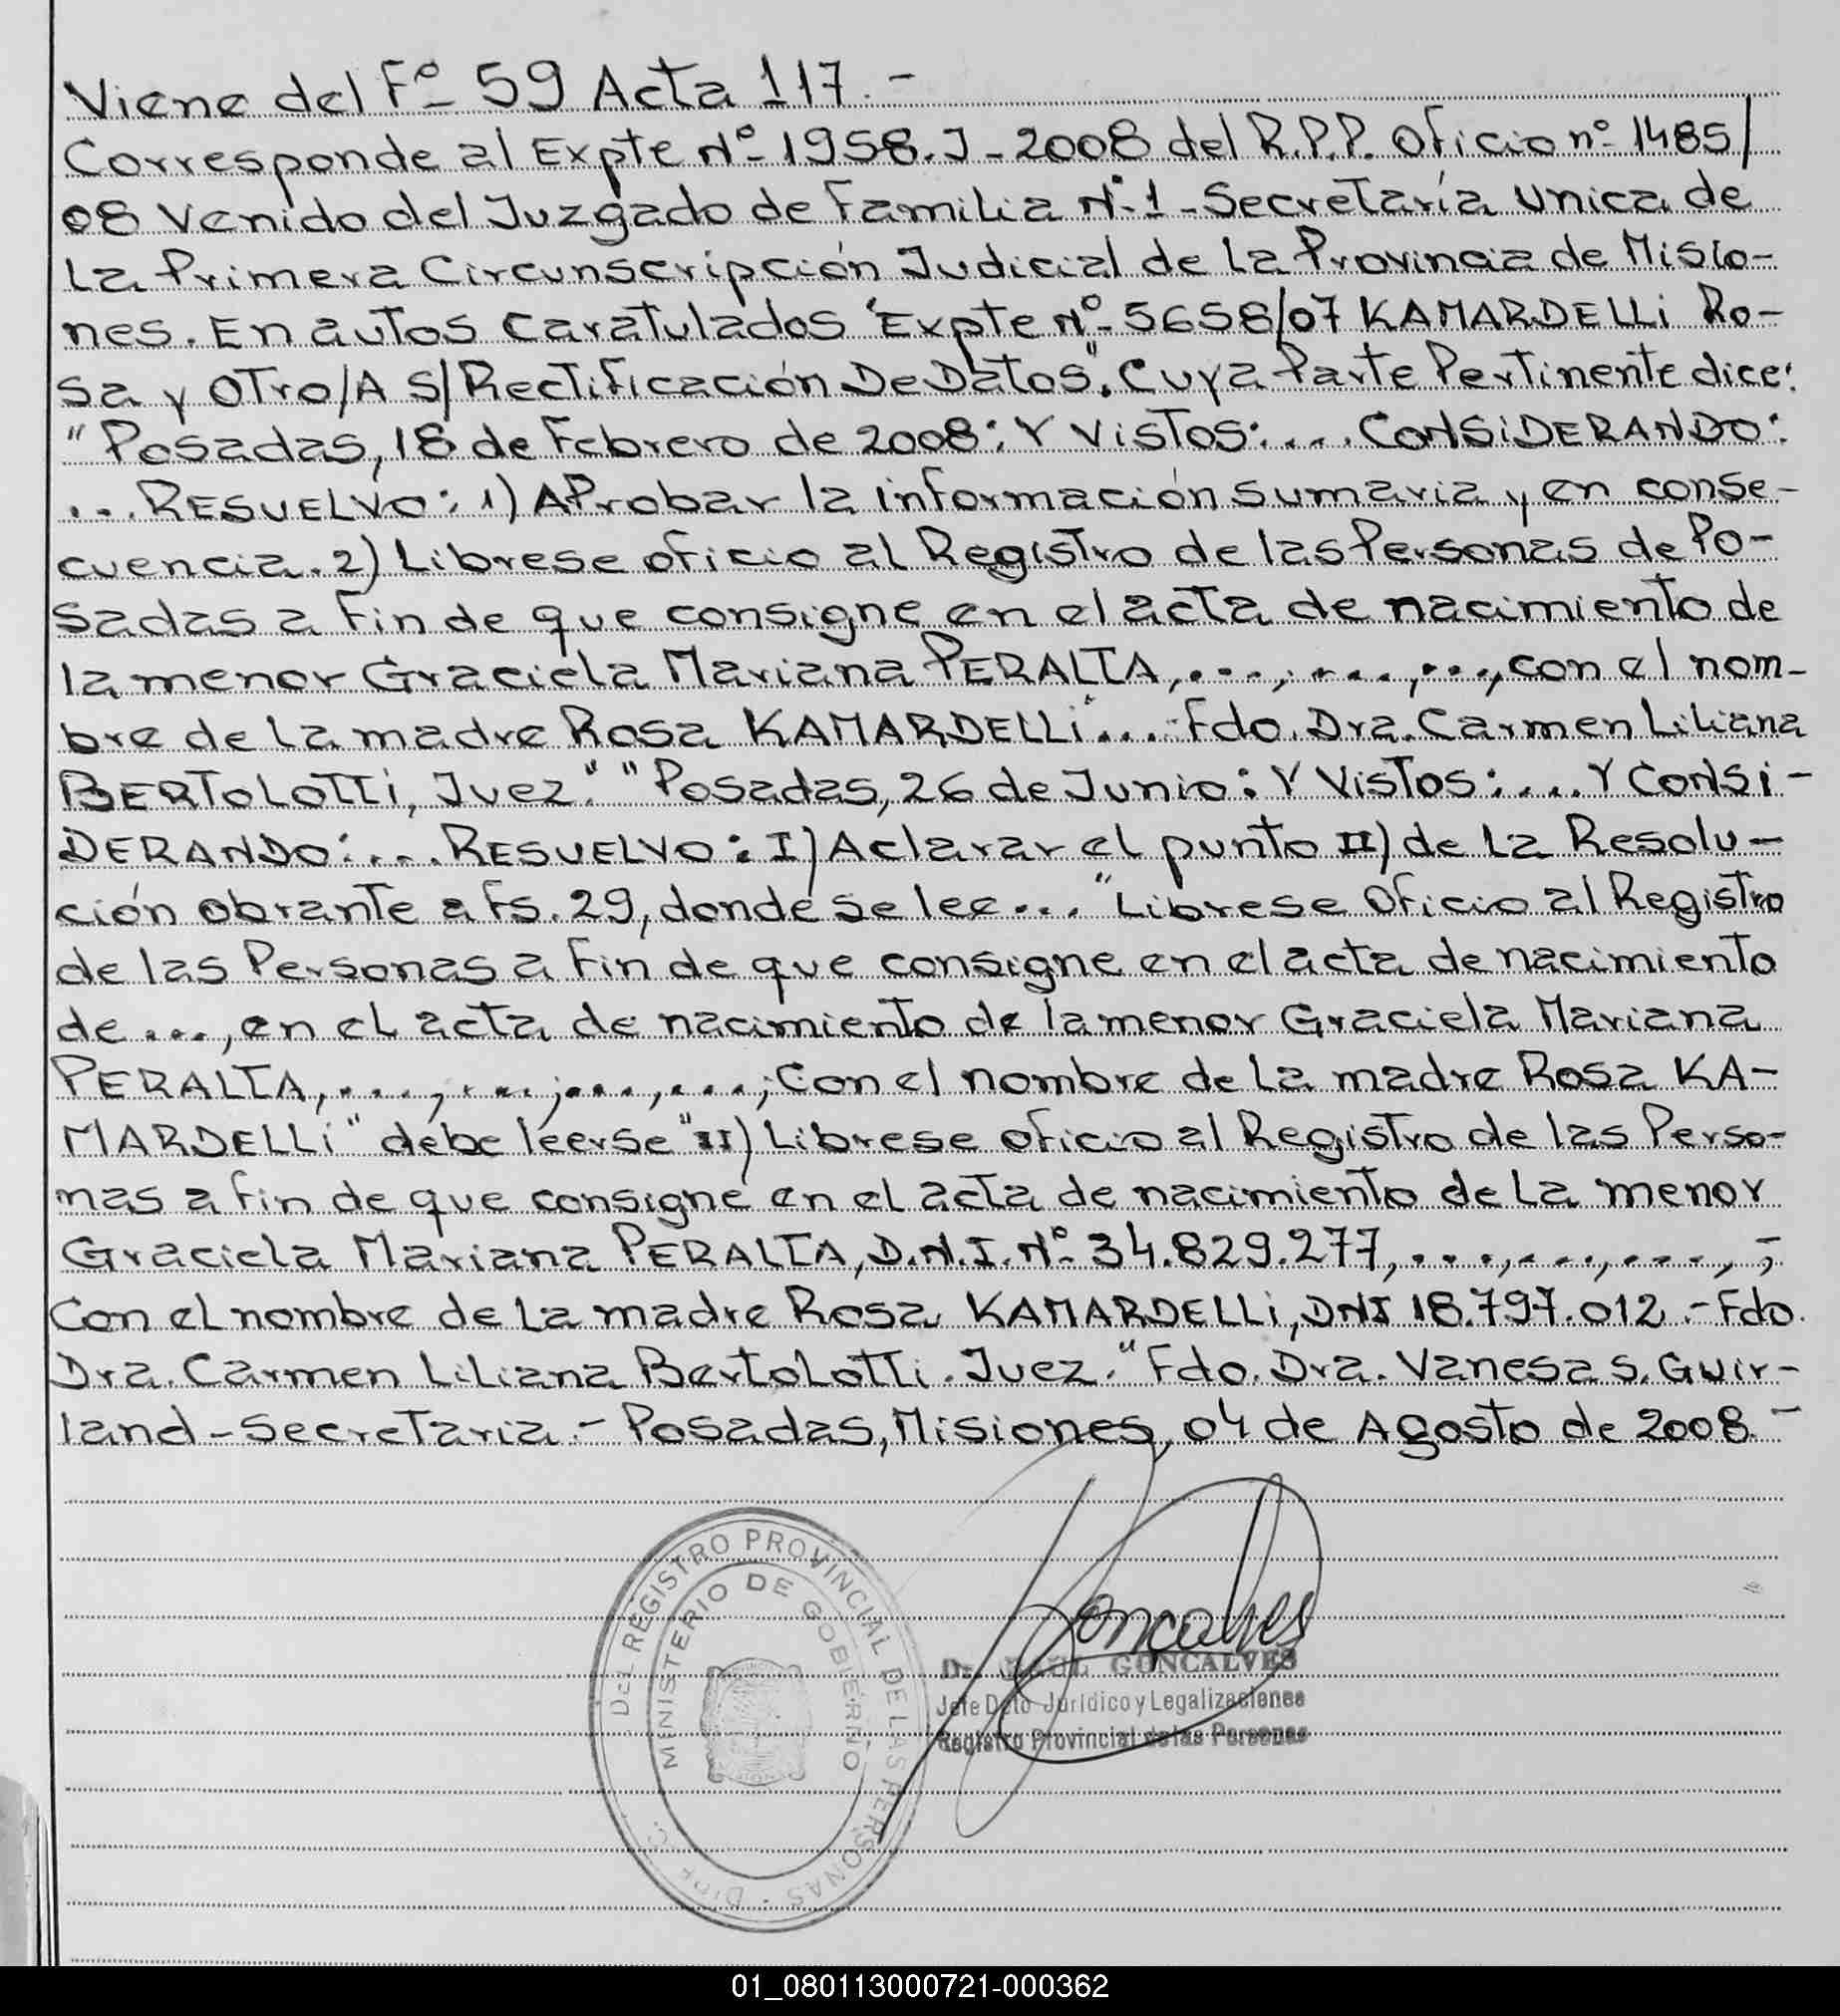 Viene del Fº 59 Acta 117.-
Corresponde al Expte Nº 1958.J-2008 del R.P.P. Oficio nº 1485/
08 Venido del Juzgado de Familia Nº 1-Secretaría Unica de
La Primera Circunscripción Judicial de la Provincia de Misio-
nes. En autos Caratulados "Expte Nº 5658/07 KAMARDELLi Ro-
sa y OTro/A S/Rectificación De Datos". Cuya Parte Pertinente dice:
"Posadas, 18 de Febrero de 2008: Y Vistos:.... CONSiDERANDO:
...RESUELVO: 1) Aprobar la información sumaria y en conse-
cuencia. 2) Librese oficio al Registro de las Personas de Po-
sadas a fin de que consigne en el acta de nacimiento de
la menor Graciela Mariana PERALTA,....,....,...,con el nom-
bre de la madre Rosa KAMARDELLi"... Fdo. Dra. Carmen Liliana
BERToLoTTi, Juez." "Posadas, 26 de Junio: Y Vistos:.... Y CoNSi-
DERANDO:... RESUELVO: I) Aclarar el punto II) de la Resolu-
ción obrante a fs. 29, donde se lee... "Librese Oficio al Registro
de las Personas a fin de que consigne en el acta de nacimiento
de ..., en el acta de nacimiento de la menor Graciela Mariana
PERALTA,....,....;...,...,; Con el nombre de la madre Rosa KA-
MARDELLi" debe leerse "II) Librese oficio al Registro de las Perso-
nas a fin de que consigne en el acta de nacimiento de la menor
Graciela Mariana PERALTA, D.N.I. Nº 34.829.277,....,....,....,-;
Con el nombre de la madre Rosa KAMARDELLi, DNI 18.797.012.-Fdo.
Dra. Carmen Liliana Bertolotti. Juez." Fdo. Dra. Vanesa S. Guir-
land-Secretaria.- Posadas, Misiones, 04 de Agosto de 2008.-
DEL REGISTRO PROVINCIAL DE LAS PERSONAS
MINISTERIO DE GOBIERNO
Goncalves
Dr. GONCALVES
Jefe Dpto Jurídico y Legalizaciones
Registro Provincial de las Personas
01_080113000721-000362